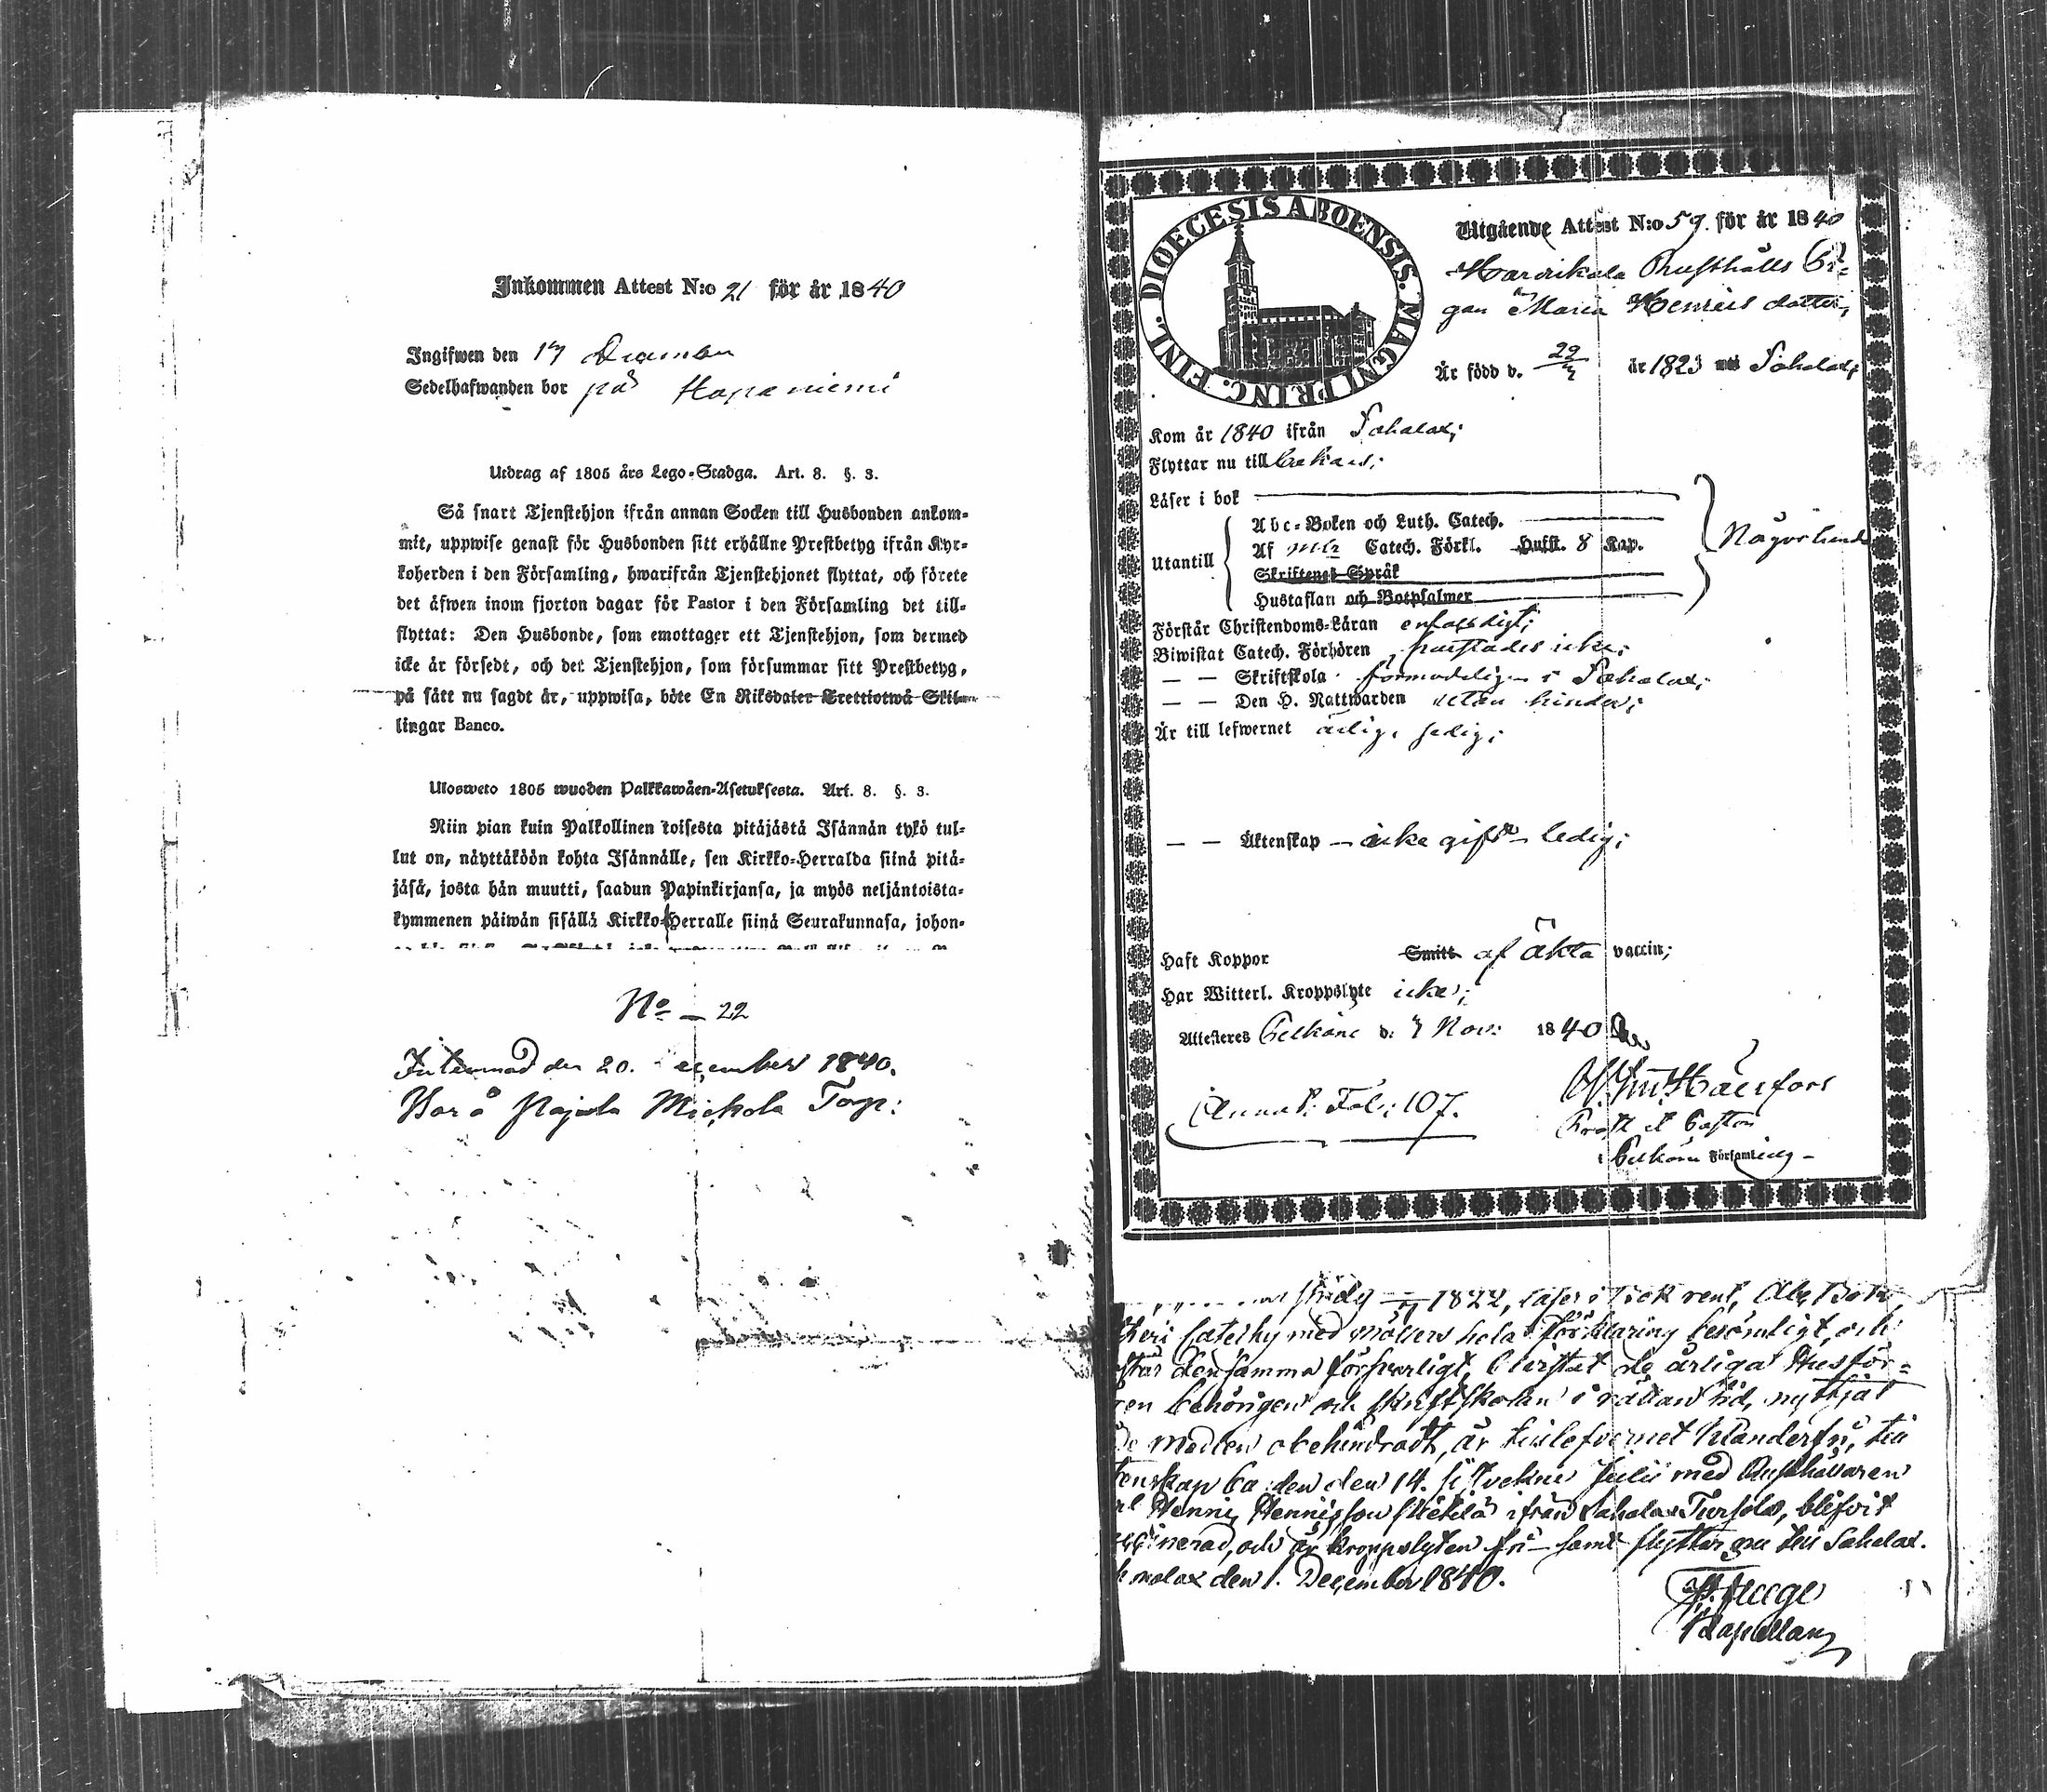 Inkommen Attest N:o 21 för år 1840
Ingifwen den 17 December
Sedelhafwanden bor på Hapaniemi
Utdrag af 1805 års Lego-Stadga. Art. 8. §. 3.
Så snart Tjenstehjon ifrån annan Socken till Husbonden ankom-
mit, uppwise genast för Husbonden sitt erhållne Prestbetyg ifrån Kyr-
koherden i den Församling, hwarifrån Tjenstehjonet flyttat, och förete
det äfwen inom fjorton dagar för Pastor i den Församling det till-
flyttat: Den Husbonde, som emottager ett Tjenstehjon, som dermed
icke är försedt, och det Tjenstehjon, som försummar sitt Prestbetyg,
på sätt nu sagdt är, uppwisa, böte En Riksdaler Trettiotwå Skil-
lingar Banco.
Ulosweto 1805 wuoden Palkkawäen-Asetuksesta. Art. 8. §. 3.
Niin pian kuin Palkollinen toisesta pitäjästä Isännän tykö tul-
lut on, näyttäköön kohta Isännälle, sen Kirkko-Herralda siinä pitä-
jäsä, josta hän muutti, saadun Papinkirjansa, ja myös neljäntoista-
kymmenen päiwän sisällä Kirkko-Herralle siinä Seurakunnasa, johon-
No 22
Inlemnad den 20. December 1840.
Bor å Pajula Mickola Torp:
DIOECESIS ABOENSIS. MAGNI PRINC. FINL.
Utgående Attest N:o 59 för år 1840
Rusthålls Pi-
gan Maria Henrics dotter,
Är född d. 29/7 år 1823 Sahalax;
Kom år 1840 ifrån Sahalax;
Flyttar nu till
Läser i bok
Abc-Boken och Luth. Catech.
Utantill Af Catech. Förkl. Husst. 8 Kap. Någorlunda
Skriftenes Språk
Hustaflan och Botpsalmer
Förstår Christendoms-Läran enfaldigt;
Biwistat Catech. Förhören icke;
— — Skriftskola förmodeligen i Sahalax;
— — Den H. Nattwarden utan hinder;
Är till lefwernet ärlig, sedig;
— — Äktenskap — icke gift — ledig;
Haft Koppor Smitt af äkta vaccin;
Har Witterl. Kroppslyte icke;
Attesteres Pelkäne d. 7 Nov: 1840
Fol: 107.
Prost et Pastor
i Pelkäne Församling
1822, läser i bok rent, Abc Bok
catechy med Möllers hela Förklaring besömligt, och
densamma försvarligt, bevistat de årliga Husför-
behörigen och skriftskolan i rättan tid, nyttjat
medlen obehindradt, är till lefvernet klanderfri, till
den den 14. Julii med Rusthållaren
Henric Hennicsson ifrån Sahalax blifvit
och är kroppslyten fri samt flyttar nu till Sahalax.
den 1. December 1840.
Kapellan